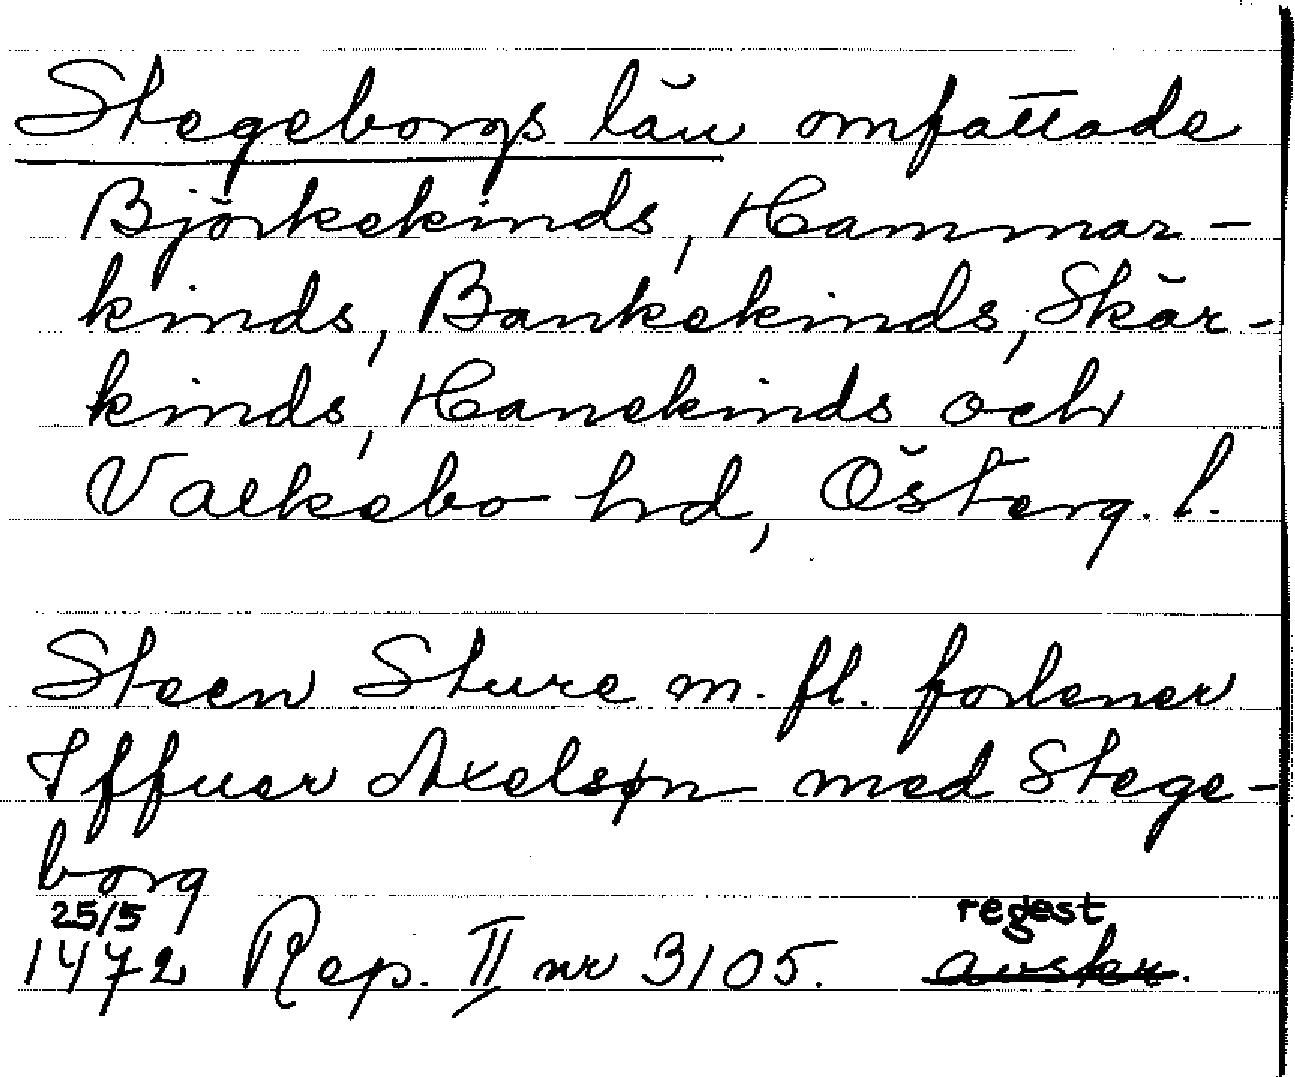 Stegeborgs län omfattade
Björkekinds, Hammar-
kinds, Bankekinds, Skär-
kinds, Hanekinds och
Valkebo hd, Österg. l.
Steen Sture m. fl. forlener
Iffuer Axelsøn med Stege-
borg
25/5 regest
1472 Rep. II nr 3105. avskr.